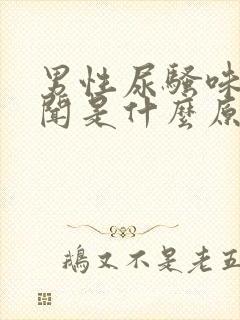 男性尿騷味
聞是什麼原
鵝又不是老五